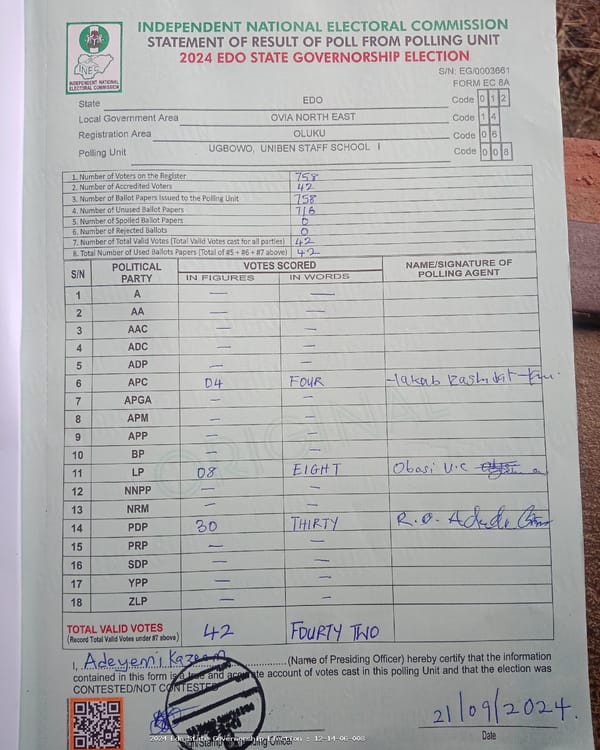 INDEPENDENT NATIONAL ELECTORAL COMMISSION
STATEMENT OF RESULT OF POLL FROM POLLING UNIT
2024 EDO STATE GOVERNORSHIP ELECTION
INEC
INDEPENDENT NATIONAL
ELECTORAL COMMISSION
S/N: EG/0003661
FORM EC 8A
State EDO Code 0 1 2
Local Government Area OVIA NORTH EAST Code 1 4
Registration Area OLUKU Code 0 6
Polling Unit UGBOWO, UNIBEN STAFF SCHOOL I Code 0 0 8
1. Number of Voters on the Register 758
2. Number of Accredited Voters 42
3. Number of Ballot Papers Issued to the Polling Unit 758
4. Number of Unused Ballot Papers 716
5. Number of Spoiled Ballot Papers 0
6. Number of Rejected Ballots 0
7. Number of Total Valid Votes (Total Valid Votes cast for all parties) 42
8. Total Number of Used Ballots Papers (Total of #5 + #6 + #7 above) 42
S/N POLITICAL PARTY VOTES SCORED NAME/SIGNATURE OF POLLING AGENT
IN FIGURES IN WORDS
1 A — —
2 AA — —
3 AAC — —
4 ADC — —
5 ADP — —
6 APC 04 FOUR
7 APGA — —
8 APM — —
9 APP — —
10 BP — —
11 LP 08 EIGHT Obasi V.C
12 NNPP — —
13 NRM — —
14 PDP 30 THIRTY R.O.
15 PRP — —
16 SDP — —
17 YPP — —
18 ZLP — —
ORIGINAL
TOTAL VALID VOTES 42 FOURTY TWO
(Record Total Valid Votes under #7 above)
I, Adeyemi Kazeem (Name of Presiding Officer) hereby certify that the information
contained in this form is a true and account of votes cast in this polling Unit and that the election was
CONTESTED/NOT CONTESTED
21/09/2024.
Date
2024 Edo State Governorship Election : 12-14-06-008